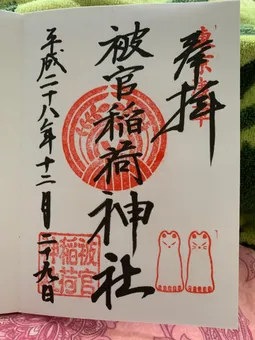 奉拝
被官稲荷神社
平成二十八年十二月二十九日
被官
稲荷
神社